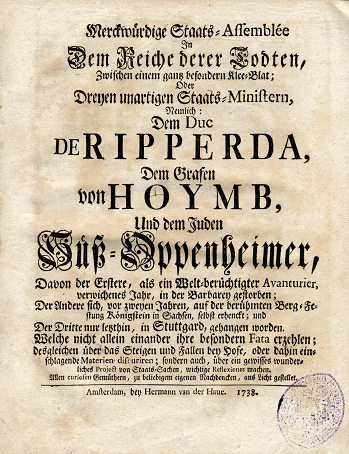 Merckwürdige Staats-Assemblée
In
Dem Reiche derer Todten,
Zwischen einem gantz besondern Klee-Blat;
Oder
Dreyen unartigen Staats-Ministern,
Nemlich:
Dem Duc
DE RIPPERDA,
Dem Grafen
von HOYMB,
Und dem Juden
Süß-Oppenheimer,
Davon der Erstere, als ein Welt-berüchtigter Avanturier,
verwichenes Jahr, in der Barbarey gestorben;
Der Andere sich, vor zweyen Jahren, auf der berühmten Berg-Fe-
stung Königstein in Sachsen, selbst erhenckt; und
Der Dritte nur letzthin, in Stuttgard, gehangen worden.
Welche nicht allein einander ihre besondern Fata erzehlen;
desgleichen über das Steigen und Fallen bey Hofe, oder dahin ein-
schlagende Materien discuriren; sondern auch, über ein gewisses wunder-
liches Project von Staats-Sachen, wichtige Reflexiones machen.
Allen curiosen Gemüthern, zu beliebigem eigenen Nachdencken, ans Licht gestellet.
Amsterdam, bey Hermann van der Haue. 1738.